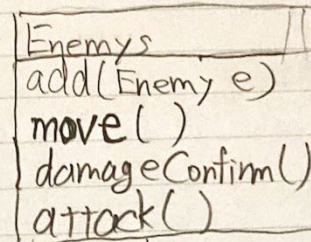 Enemys
add(Enemy e)
move()
damageConfirm()
attack()